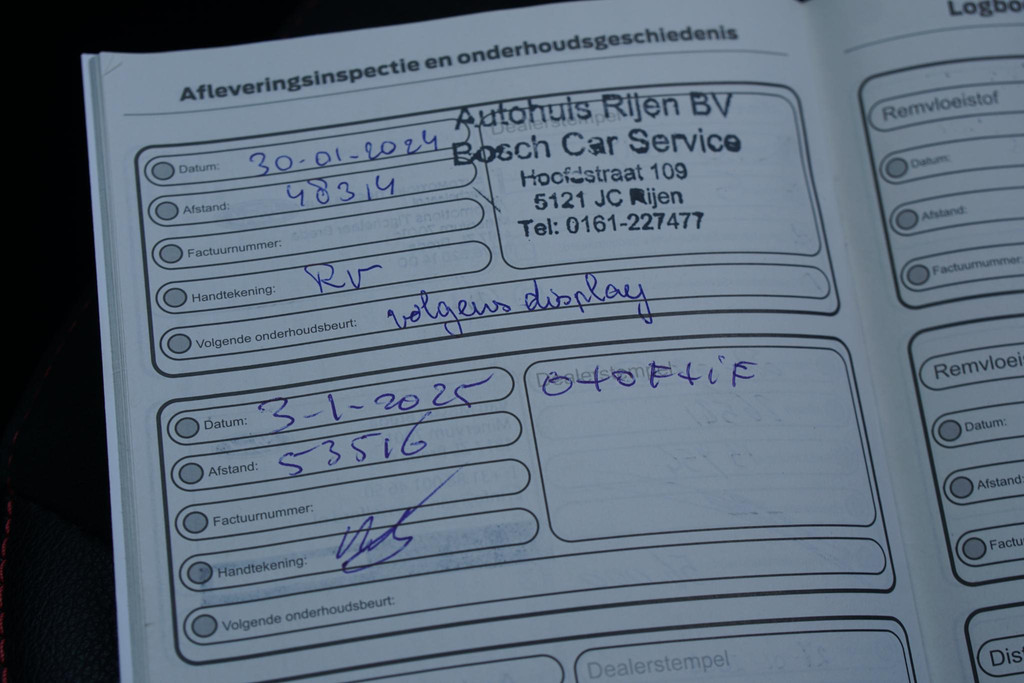 Afleveringsinspectie en onderhoudsgeschiedenis
Datum: 30-01-2024
Afstand: 48314
Factuurnummer:
Handtekening: RV
Volgende onderhoudsbeurt: volgens display
Dealerstempel
Autohuis Rijen BV
Bosch Car Service
Hoofdstraat 109
5121 JC Rijen
Tel: 0161-227477
Datum: 3-1-2025
Afstand: 53516
Factuurnummer:
Handtekening:
Volgende onderhoudsbeurt:
Dealerstempel
Dealerstempel
Remvloeistof
Datum:
Afstand:
Factuurnummer:
Datum:
Afstand: